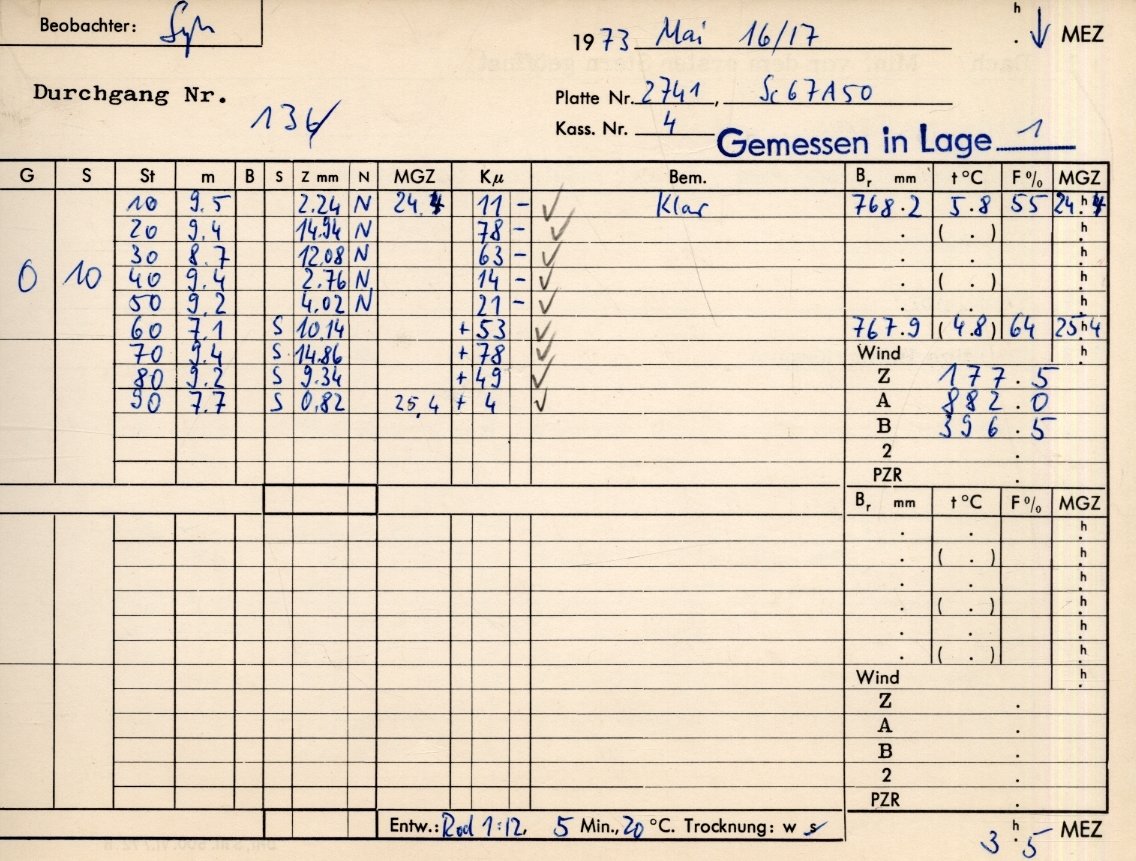 Beobachter:
h
1973 Mai 16/17 . ↓ MEZ
Durchgang Nr.
Platte Nr. 2741, Sc67A50
Kass. Nr. 4
Gemessen in Lage 1
G S St m B S Z mm N MGZ Kμ Bem. Br mm t °C F % MGZ
10 9.5 2.24 N 11 - ✓ Klar 768.2 5.8 55
20 9.4 14.94 N 78 - ✓ . ( . ) h
30 8.7 12.08 N 63 - ✓ . . h
0 10 40 9.4 2.76 N 14 - ✓ . ( . ) h
50 9.2 4.02 N 21 - ✓ . . h
60 7.1 S 10.14 + 53 ✓ 767.9 (4.8) 64 25.h4
70 9.4 S 14.86 + 78 ✓ Wind h
80 9.2 S 9.34 + 49 ✓ Z 177.5
90 7.7 S 0,82 25,4 + 4 ✓ A 882.0
B 396.5
2 .
PZR .
Br mm t °C F % MGZ
. . h
. ( . ) h
. . h
. ( . ) h
. . h
. ( . ) h
Wind h
Z .
A .
B .
2 .
PZR .
Entw.: Rod 1:12, 5 Min., 20 °C. Trocknung: w s
3 h. 5 MEZ